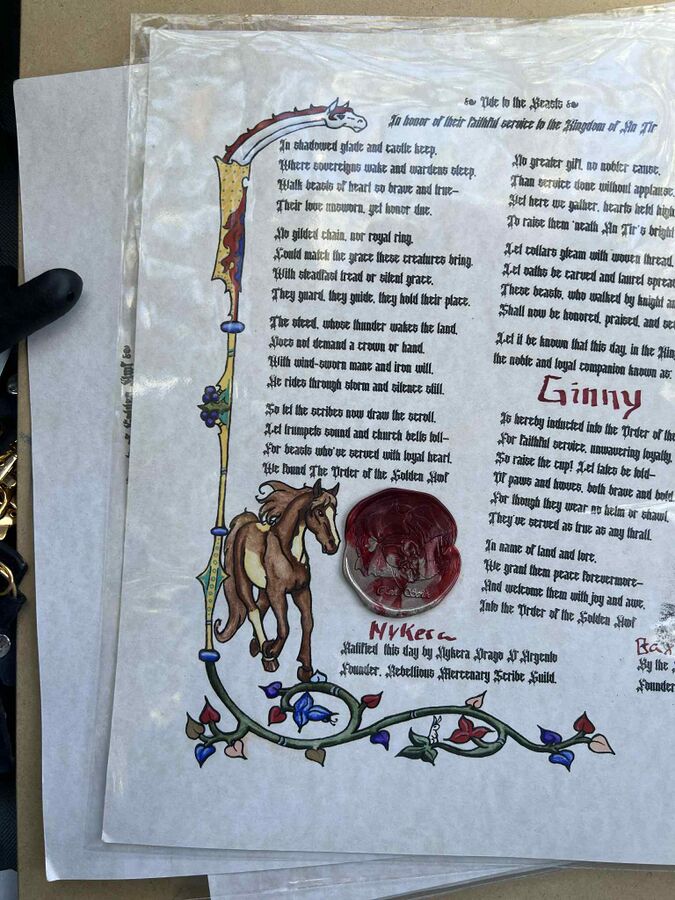 Ode to the Beasts
In honor of their faithful service to the Kingdom of An Tir
In shadowed glade and castle keep,
Where sovereigns wake and wardens sleep,
Walk beasts of heart so brave and true—
Their love unsworn, yet honor due.
No gilded chain, nor royal ring,
Could match the grace these creatures bring.
With steadfast tread or silent grace,
They guard, they guide, they hold their place.
The steed, whose thunder wakes the land,
Does not demand a crown or hand.
With wind-sworn mane and iron will,
He rides through storm and silence still.
So let the scribes now draw the scroll,
Let trumpets sound and church bells toll—
For beasts who've served with loyal heart,
We found The Order of the Golden Awf
Nykera
Ratified this day by Nykera Drago D'Argento
Founder, Rebellious Mercenary Scribe Guild.
No greater gift, no nobler cause,
Than service done without applause.
Yet here we gather, hearts held high
To raise them 'neath An Tir's bright
Let collars gleam with woven thread,
Let oaths be carved and laurel spread
These beasts, who walked by knight an
Shall now be honored, praised, and se
Let it be known that this day, in the Kin
the noble and loyal companion known as:
Ginny
Is hereby inducted into the Order of the
For faithful service, unwavering loyalty,
So raise the cup! Let tales be told—
Of paws and hooves, both brave and bold.
For though they wear no helm or shawl,
They've served as true as any thrall.
In name of land and lore,
We grant them peace forevermore—
And welcome them with joy and awe,
Into the Order of the Golden Awf
Bax
By the
Founder